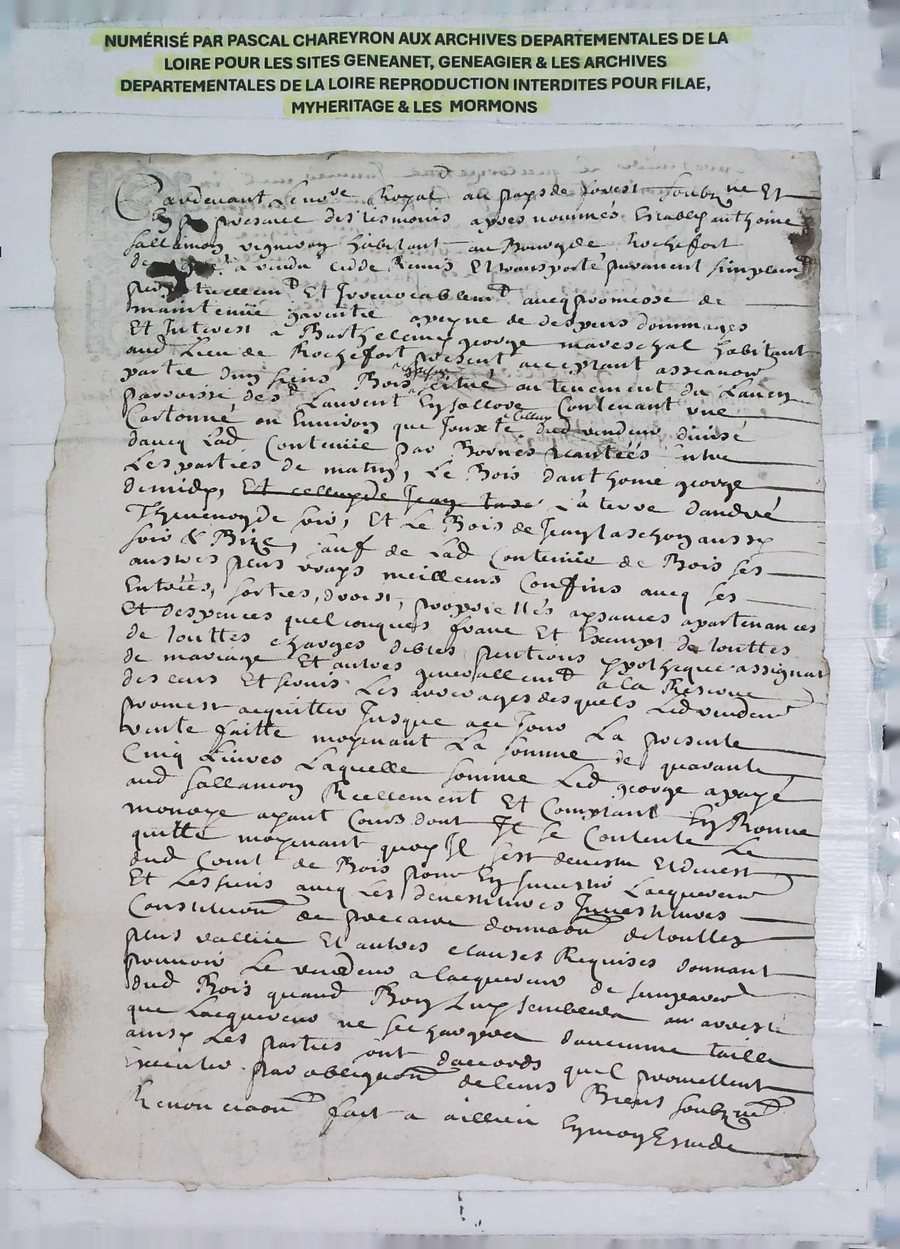 NUMÉRISÉ PAR PASCAL CHAREYRON AUX ARCHIVES DEPARTEMENTALES DE LA
LOIRE POUR LES SITES GENEANET, GENEAGIER & LES ARCHIVES
DEPARTEMENTALES DE LA LOIRE REPRODUCTION INTERDITES POUR FILAE,
MYHERITAGE & LES MORMONS
Pardevant Le no.re Royal au pays de forest soubz.ne Et
En presance des tesmoins apres nommés Estably anthoine
sallamon vigneron habitant au Bourg de Rochefort
a vendu cedde Remis Et transporté purement simplem.
perpetuellem. Et Irrevocablem. avecq promesse de
maintenüe garentie a peyne de despens dommages
Et Interest a Barthelemy george mareschal habitant
aud Lieu de Rochefort present acceptant assavoir
partie dun siens Bois situé au tenement du
paroisse de S. Laurent Contenant une
Cartonné ou Environ que Jouxte dud vendeur divisé
davecq Lad Contenüe par Bornes plantées entre
Les parties de matin, Le Bois danthoine george
de midy, Et celluy de Jean La terre dandré
de soir, Et Le Bois de Jean aussy
soir & Bize, sauf de Lad Contenüe de Bois ses
autres plus vrays meilleurs Confins avecq ses
Entrées, sorties, droist, propriettés aysances apartenances
Et despances quelconques franc Et Exempt de touttes
de touttes charges debtes pentions ypotheque assignat
de mariage Et autres generallem. a la Reserve
des cens Et servis Les arrerages desquels Led vendeur
promest acquitter Jusque a ce Jour La presente
vente faitte moyenant La somme de quarante
Cinq Livres Laquelle somme Led george a payé
aud sallamon Reellement Et Comptant En Bonne
monoye ayant Cours dont Il se Contente Le
quitte moyenant quoy Il sest devestu Et devest
dud Bois pour En Investir Lacquereur
Et Les siens avecq Les devestitures Investitures
Constitution de precaire donnaon de touttes
plus vallüe Et autres clauses Requises donnant
pouvoir Le vendeur a lacquereur de
dud Bois quand Bon Luy semblera au
que Lacquereur ne se chargera daucunne taille
ainsy Les parties ont daccords quel promettent
Executer par obligaon de leurs Biens soubz.on
Renonciaon fait a En mon Estude